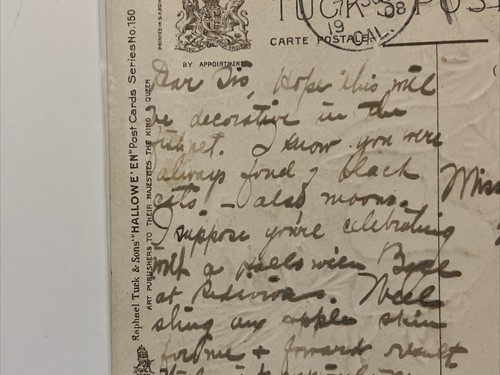 TUCK'S POS
19 08
CAL.
CARTE POSTALE
BY APPOINTMENT
PRINTED IN SAXONY
Raphael Tuck & Sons' "HALLOWE'EN" Post Cards Series No. 150
ART PUBLISHERS TO THEIR MAJESTIES THE KING & QUEEN
Dear Sis, Hope this will
be decorative in the
I know you were
always fond of black
cats – also moons.
I suppose you're celebrating
with a
at Well
sling any apple skin
fortune & forward result
Miss